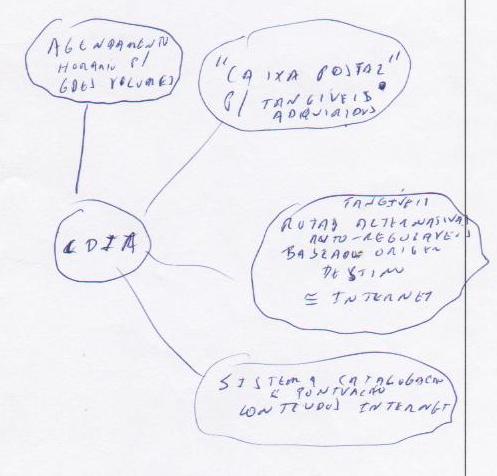 AGENDAMENTO
HORARIO P/
GDES VOLUMES
"CAIXA POSTAL"
P/ TANGÍVEIS
ADQUIRIDOS
TANGÍVEIS
ROTAS ALTERNATIVAS
AUTO-REGULÁVEIS
ORIGEM
DESTINO
≅ INTERNET
SISTEMA CATALOGACAO
E PONTUACAO
CONTEUDOS INTERNET